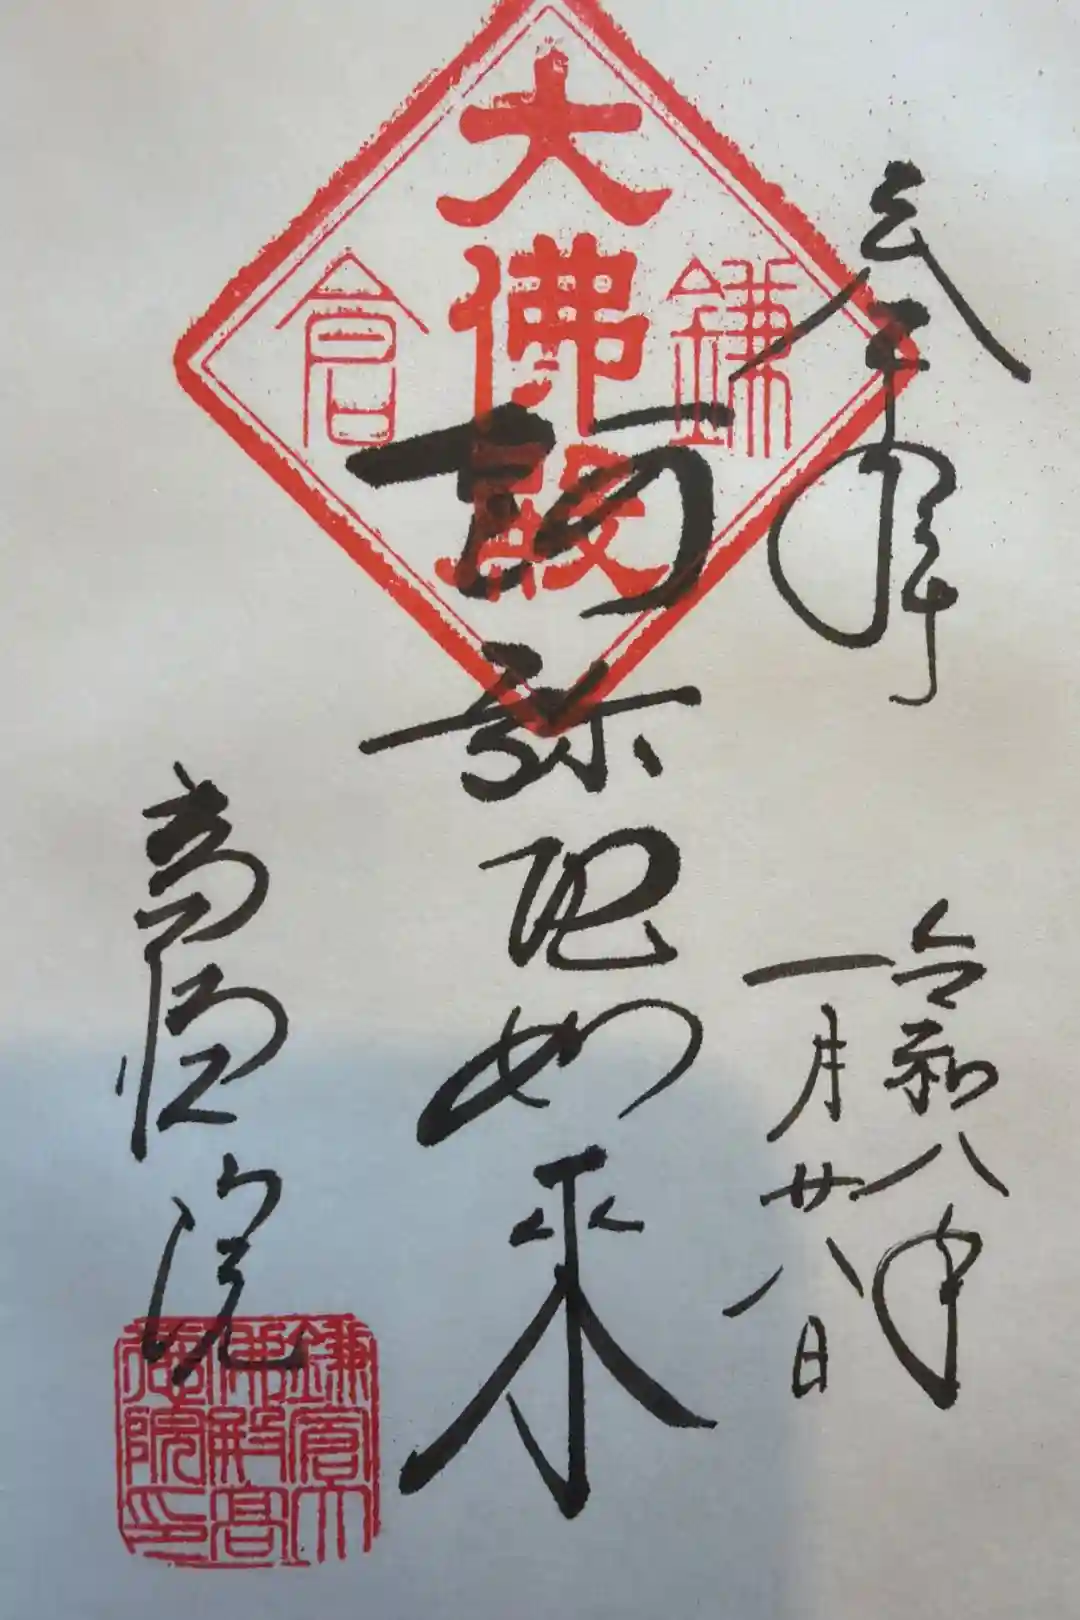 奉拝
令和八年
一月廿八日
鎌倉
大佛殿
阿弥陀如来
高徳院
鎌倉大佛殿高徳院印